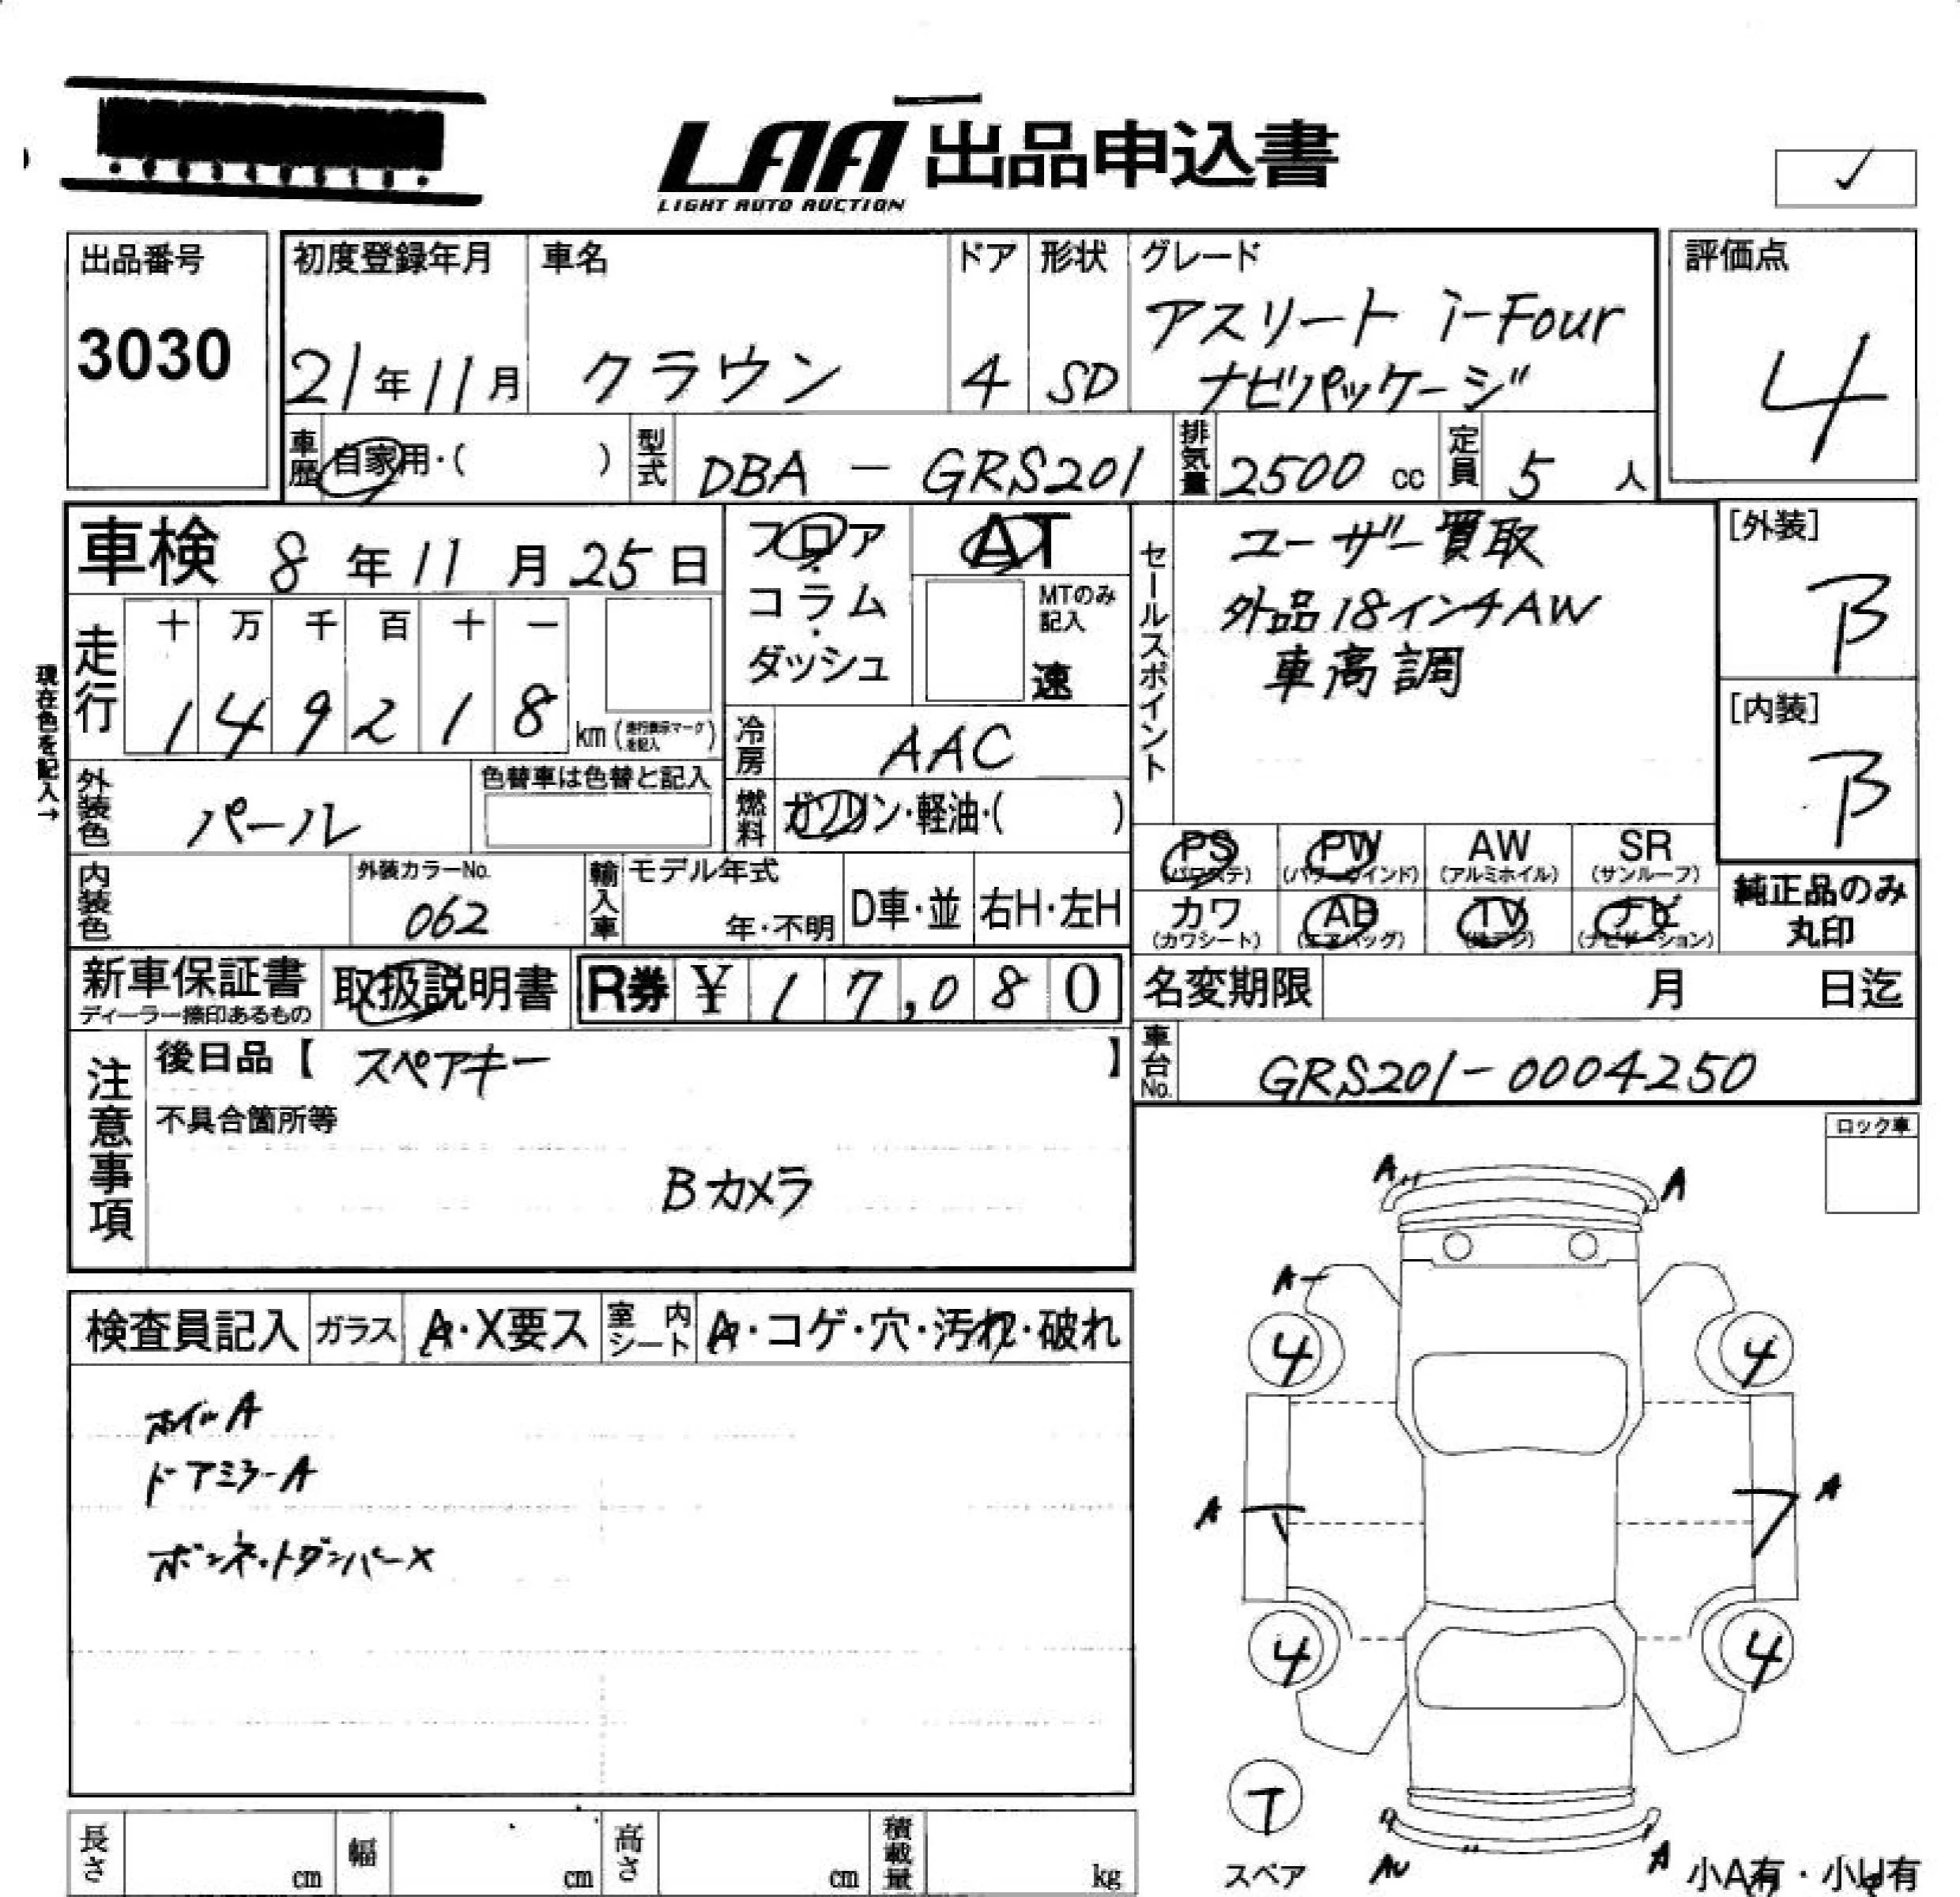 LAA 出品申込書
LIGHT AUTO AUCTION
✓
出品番号
3030
初度登録年月
21年11月
車名
クラウン
ドア
4
形状
SD
グレード
アスリート i-Four
ナビパッケージ
評価点
4
車歴
自家用・( )
型式
DBA - GRS201
排気量
2500 cc
定員
5 人
車検 8年11月25日
フロア
・
コラム
・
ダッシュ
AT
MTのみ
記入
速
セールスポイント
ユーザー買取
外品18インチAW
車高調
[外装]
B
[内装]
B
現在色を記入→
走行
十 万 千 百 十 一
1 4 9 2 1 8 km (走行表示マークを記入)
冷房
AAC
外装色
パール
色替車は色替と記入
燃料
ガソリン・軽油・( )
PS
(パワステ)
PW
(パワーウインド)
AW
(アルミホイル)
SR
(サンルーフ)
カワ
(カワシート)
AB
(エアバッグ)
TV
ナビ
(ナビゲーション)
純正品のみ
丸印
内装色
外装カラーNo.
062
輸入車
モデル年式
年・不明
D車・並
右H・左H
新車保証書
ディーラー捺印あるもの
取扱説明書
R券 ¥ 17,080
名変期限 月 日迄
車台No.
GRS201-0004250
注意事項
後日品【 スペアキー 】
不具合箇所等
Bカメラ
ロック車
A A
A
4 4
A A
4 4
T
スペア
AU A
小A有・小U有
検査員記入
ガラス
A・X要ス
室内シート
A・コゲ・穴・汚れ・破れ
ホイルA
ドアミラーA
ボンネットダンパーX
長さ cm
幅 cm
高さ cm
積載量 kg